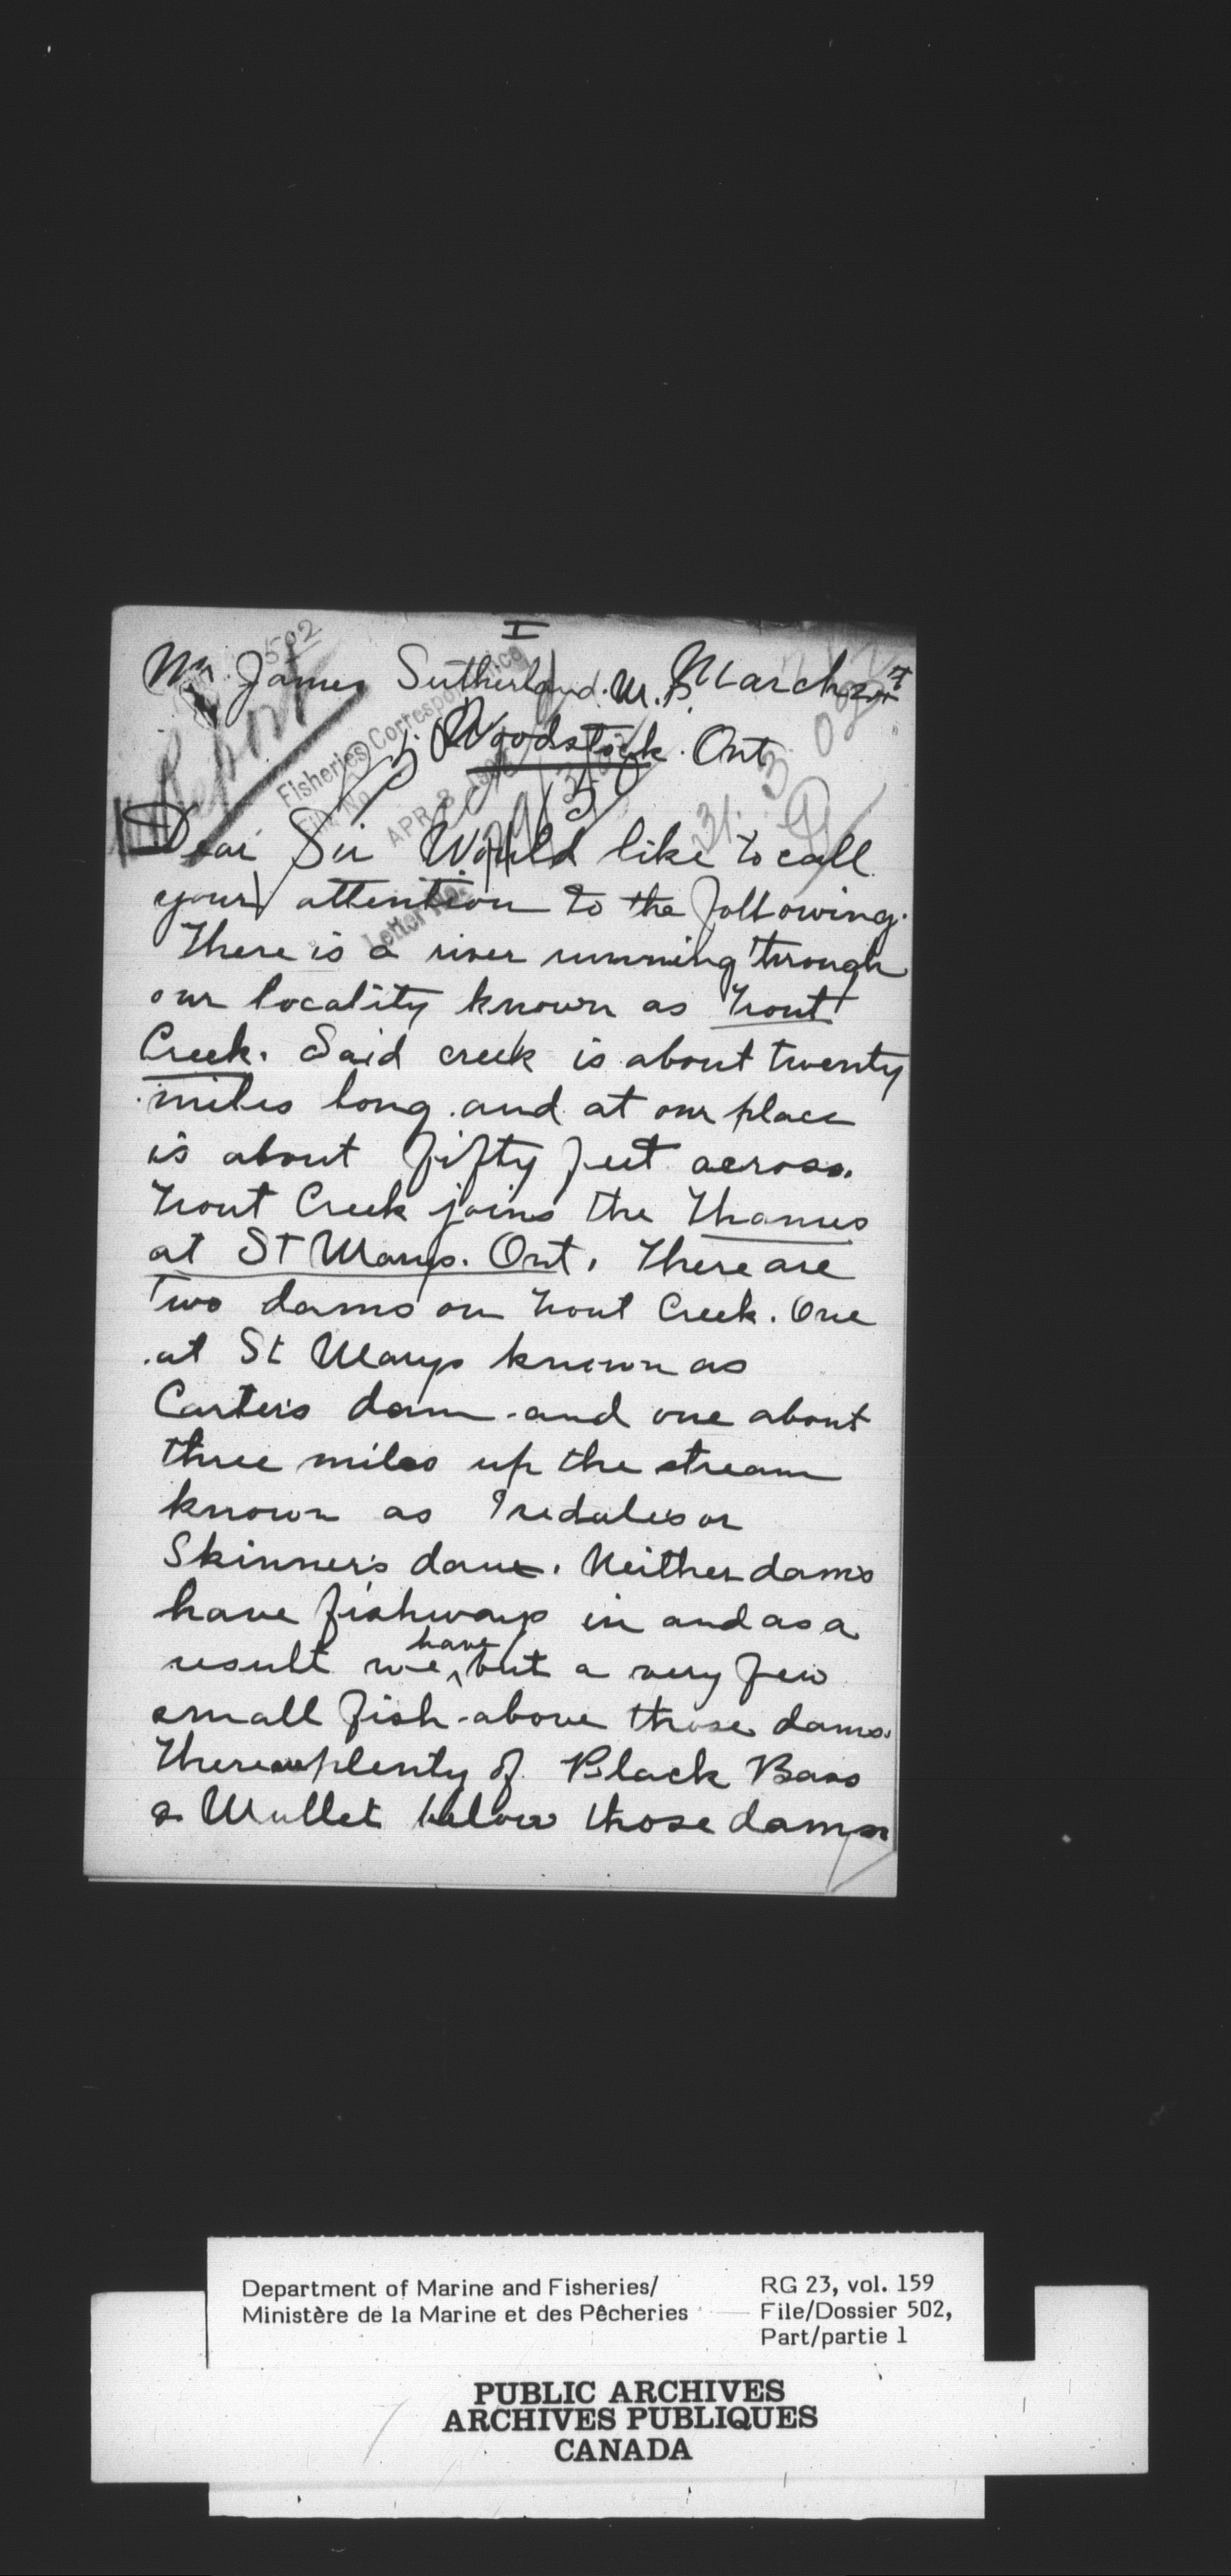 I
502
Mr. James Sutherland. M.P. March 21st
Woodstock. Ont
Fisheries Correspondence
File No.
APR 8
Letter No.
Dear Sir Would like to call
your attention to the following.
There is a river running through
our locality known as Trout
Creek. Said creek is about twenty
miles long. and at our place
is about fifty feet across.
Trout Creek joins the Thames
at St Marys. Ont. There are
Two dams on Trout Creek. One
at St Marys known as
Carter's dam. and one about
three miles up the stream
known as or
Skinner's dam. Neither dams
have fishways in and as a
result we have but a very few
small fish above those dams.
There plenty of Black Bass
& Mullet below those dams
Department of Marine and Fisheries/
Ministère de la Marine et des Pêcheries
RG 23, vol. 159
File/Dossier 502,
Part/partie 1
PUBLIC ARCHIVES
ARCHIVES PUBLIQUES
CANADA